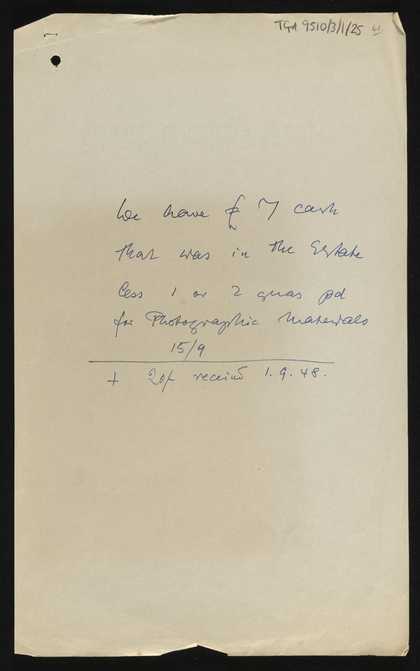 TGA 9510/3/1/25
We have £ 7 cash
that was in the Estate
less 1 or 2 gnas pd
for Photographic Materials
15/9
+ 20/- received 1.9.48.